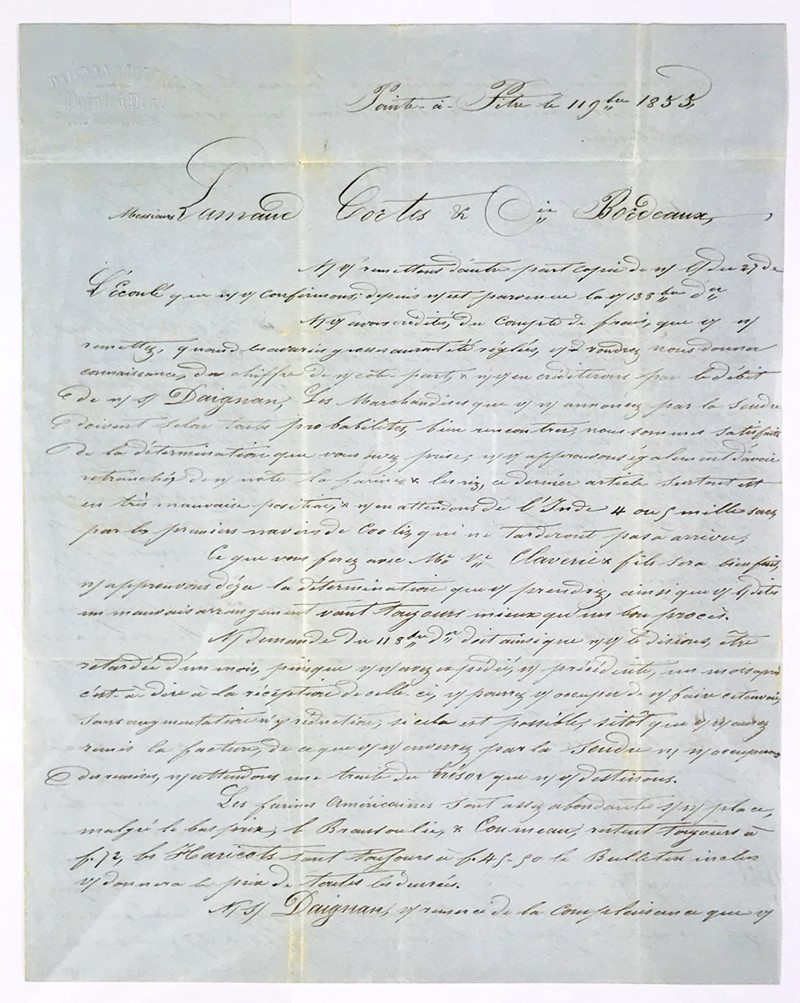 Pointe-à-Pitre
Pointe-à-Pitre le 11 9bre 1853,
Messieurs Lamaud Cortès & Cie Bordeaux,
N/ v/ remettons d'autre part copie de n/ l/ du 27 de
L'écoulé que n/ v/ confirmons; depuis n/ est parvenue la v/ 13 8bre dr
N/ v/ avons crédité, du Compte de frais, que v/ n/
remettez, quand les avaries grosses auront été réglées, v/ voudrez nous donner
connaissance, du chiffre de n/ côte part, & n/ v/ en créditerons par le débit
de n/ S/ Daignan, Les Marchandises que v/ n/ annoncez par la Seudre
doivent selon toutes probabilités, bien rencontrer, nous sommes satisfaits
de la détermination que vous avez prise, n/ v/ approuvons également d'avoir
retranché de n/ note la farine & les riz, ce dernier article surtout est
en très mauvaise position, & n/ en attendons de l'Inde 4 ou 5 mille sacs
par les premiers navires de Coolies qui ne tarderont pas à arriver,
Ce que vous ferez avec Me Ve Claverie & fils sera bien fait,
n/ approuvons déjà la détermination que v/ prendrez, ainsi que v/ l/ dites
un mauvais arrangement vaut toujours mieux qu'un bon procès.
N/ demande du 11 8bre dr doit ainsi que n/ v/ l/ disions, être
retardée d'un mois, puisque v/ n/ avez expédié, n/ précédente, un mois après
c'est-à-dire à la réception de celle-ci, v/ pourrez v/ occuper de n/ faire cet envoi,
sans augmentation n'y réduction, si cela est possible, sitôt que v/ n/ aurez
remis la facture, de ce que v/ n/ enverrez par la Seudre n/ n/ occuperons
du remise, n/ attendons une traite du trésor que n/ v/ destinons.
Les farines Américaines sont assez abondantes s/ n/ place,
malgré le bas prix, le Bransoulié, & Courneau, restent toujours à
f. 72, les Haricots sont toujours à f. 45-50 le Bulletin inclus
v/ donnera le prix de toutes les denrées.
N/ S/ Daignan, v/ remercie de la complaisance que v/